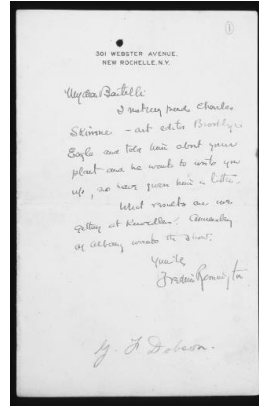 1
301 WEBSTER AVENUE.
NEW ROCHELLE. N.Y.
My dear Bartelli
I met my friend Charles
Skinner - art editor Brooklyn
Eagle and told him about your
plant and he wants to write you
up, so have given him a letter.
What results are we
getting at Knoedler's. Annesley
of Albany wants to show.
Yours
Frederic Remington
G. F. Dobson.